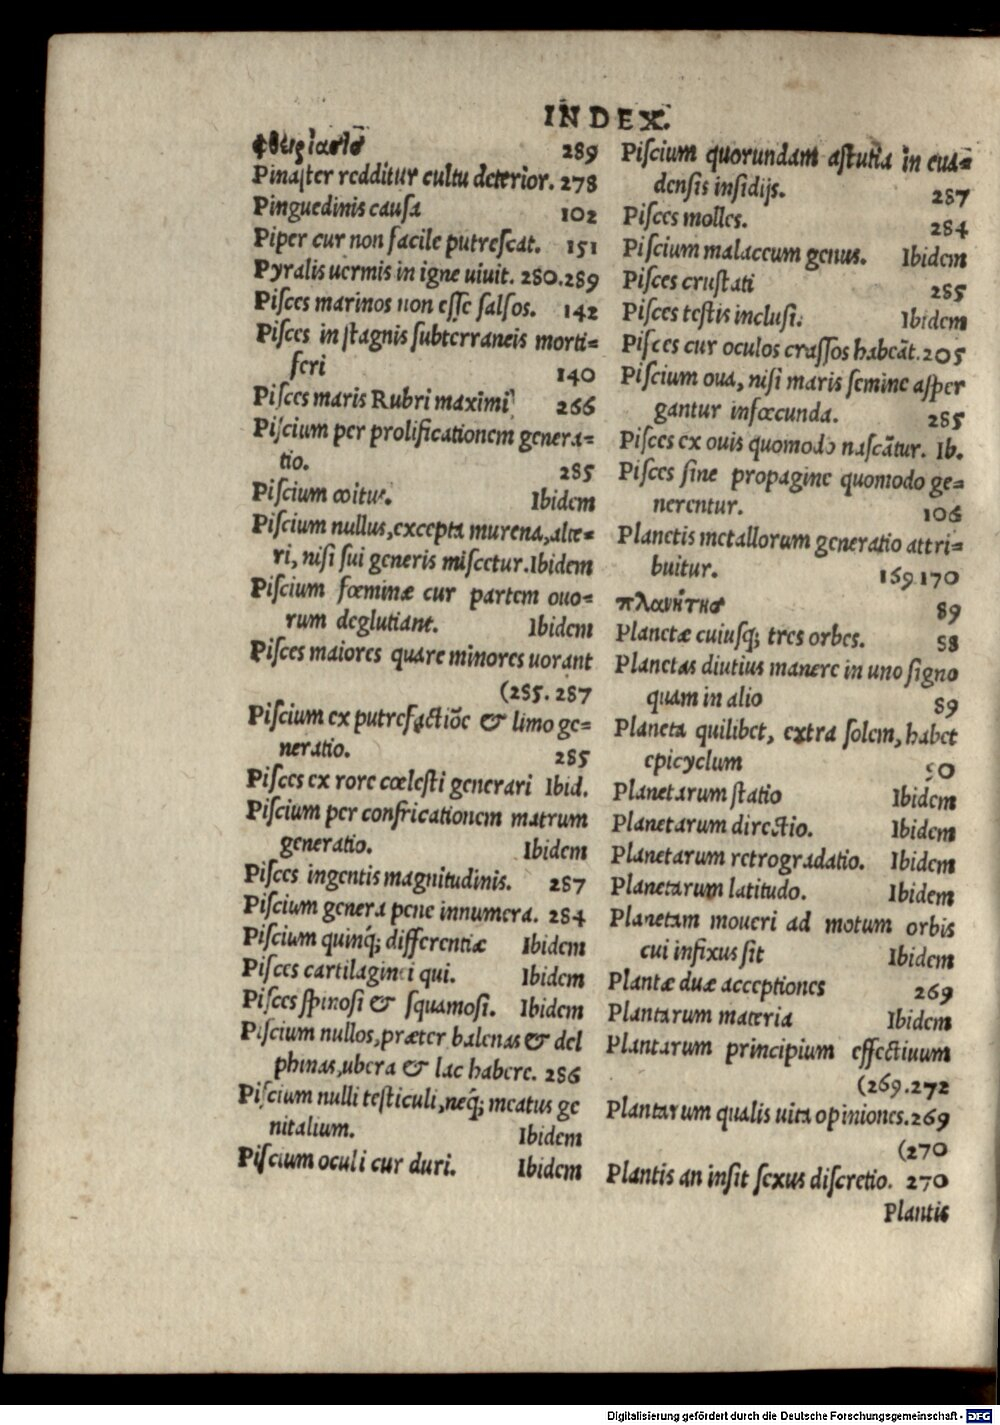 INDEX.
φθειρίασις 289
Pinaſter redditur cultu deterior. 278
Pinguedinis cauſa 102
Piper cur non facile putreſcat. 151
Pyralis uermis in igne uiuit. 280.289
Piſces marinos non eſſe ſalſos. 142
Piſces in ſtagnis ſubterraneis morti=
feri 140
Piſces maris Rubri maximi 266
Piſcium per prolificationem genera=
tio. 285
Piſcium coitus. Ibidem
Piſcium nullus, excepta murena, alte=
ri, niſi ſui generis miſcetur. Ibidem
Piſcium fœminæ cur partem ouo=
rum deglutiant. Ibidem
Piſces maiores quare minores uorant
(285. 287
Piſcium ex putrefactiōe & limo ge=
neratio. 285
Piſces ex rore cœleſti generari Ibid.
Piſcium per confricationem matrum
generatio. Ibidem
Piſces ingentis magnitudinis. 287
Piſcium genera pene innumera. 284
Piſcium quinq́; differentiæ Ibidem
Piſces cartilaginei qui. Ibidem
Piſces ſpinoſi & ſquamoſi. Ibidem
Piſcium nullos, præter balenas & del
phinas, ubera & lac habere. 286
Piſcium nulli teſticuli, neq́; meatus ge
nitalium. Ibidem
Piſcium oculi cur duri. Ibidem
Piſcium quorundam aſtutia in eua=
denſis inſidijs. 287
Piſces molles. 284
Piſcium malaceum genus. Ibidem
Piſces cruſtati 285
Piſces teſtis incluſi. Ibidem
Piſces cur oculos craſſos habeāt. 205
Piſcium oua, niſi maris ſemine aſper
gantur infœcunda. 285
Piſces ex ouis quomodo naſcātur. Ib.
Piſces ſine propagine quomodo ge=
nerentur. 106
Planetis metallorum generatio attri=
buitur. 169.170
πλανήτης 89
Planetæ cuiuſq; tres orbes. 88
Planetas diutius manere in uno ſigno
quam in alio 89
Planeta quilibet, extra ſolem, habet
epicyclum 90
Planetarum ſtatio Ibidem
Planetarum directio. Ibidem
Planetarum retrogradatio. Ibidem
Planetarum latitudo. Ibidem
Planetam moueri ad motum orbis
cui infixus ſit Ibidem
Plantæ duæ acceptiones 269
Plantarum materia Ibidem
Plantarum principium effectiuum
(269.272
Plantarum qualis uita opiniones. 269
(270
Plantis an inſit ſexus diſcretio. 270
Plantis
Digitalisierung gefördert durch die Deutsche Forschungsgemeinschaft - DFG